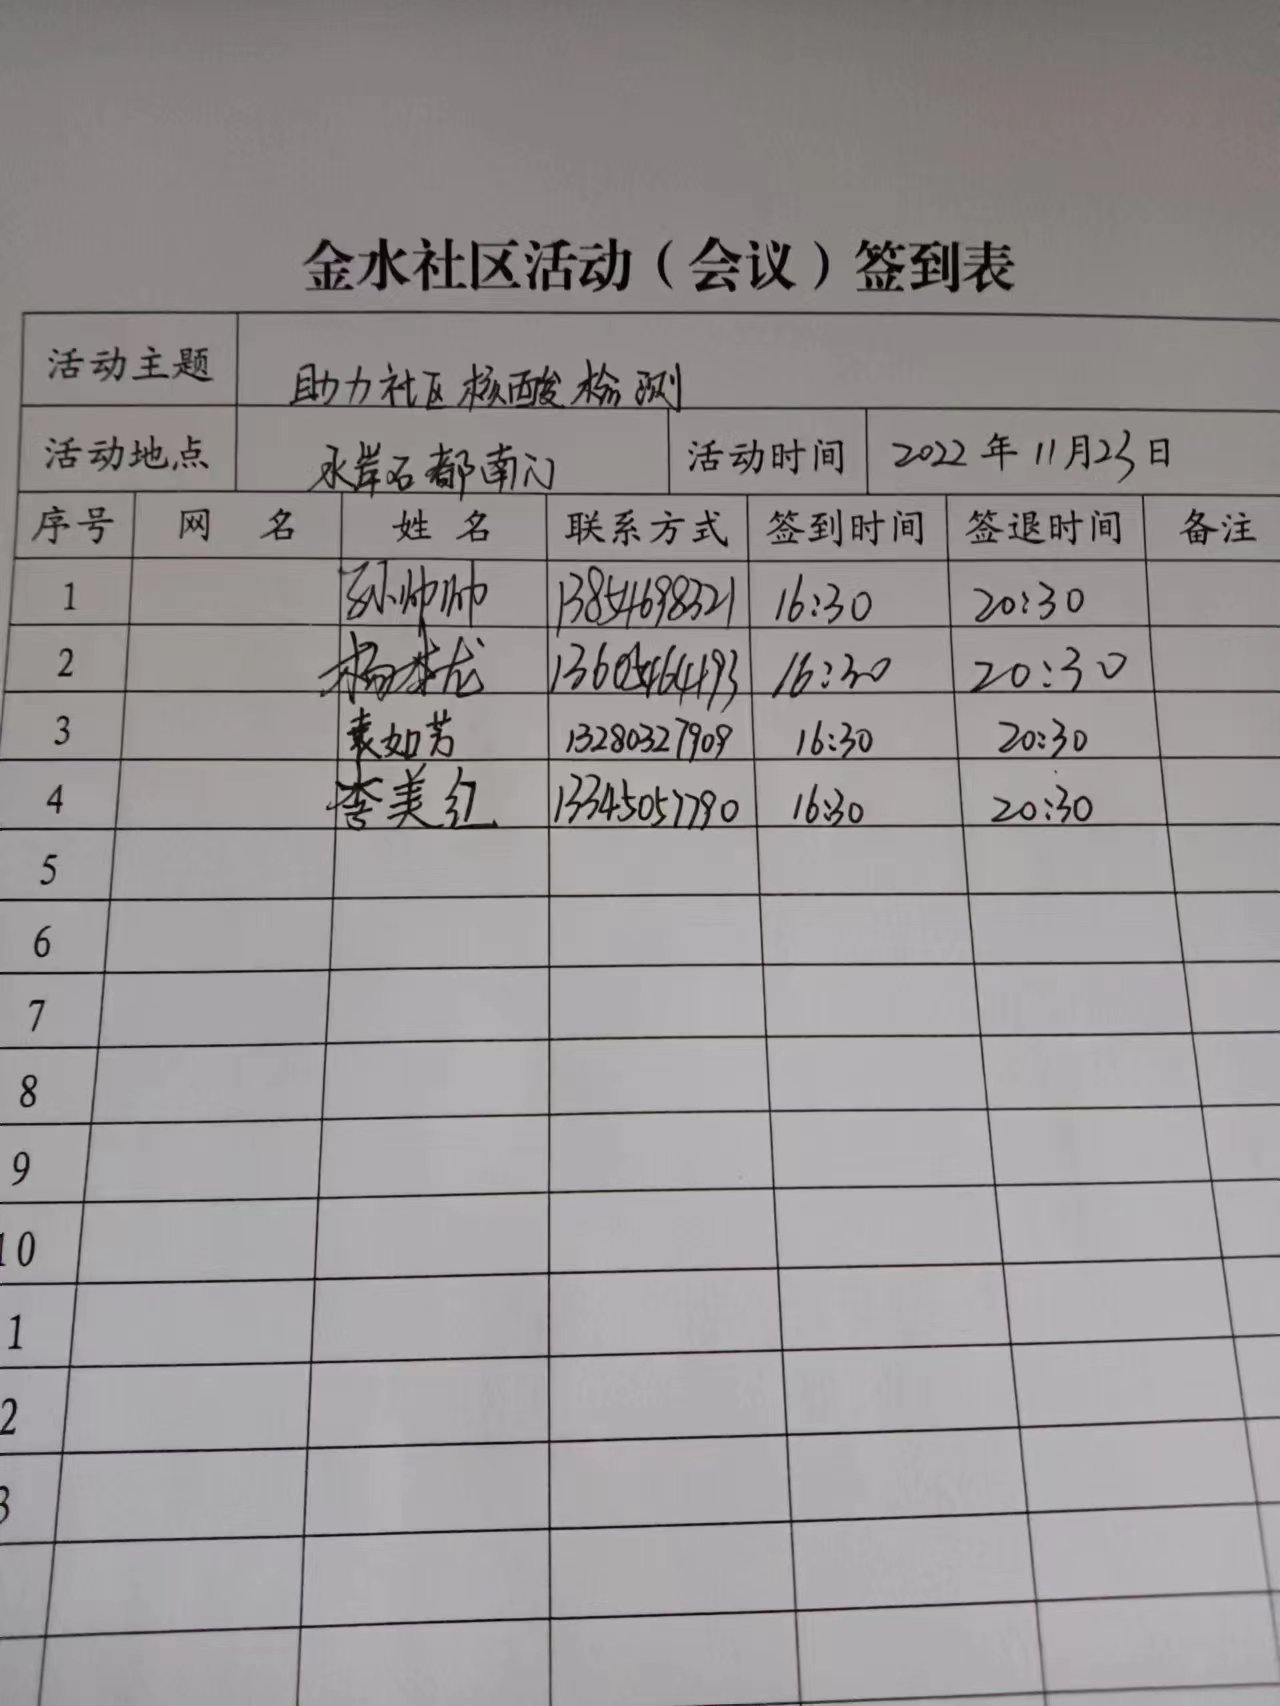 金水社区活动（会议）签到表
活动主题 助力社区核酸检测
活动地点 水岸名都南门 活动时间 2022年11月23日
序号 网 名 姓 名 联系方式 签到时间 签退时间 备注
1 孙帅帅 13854698321 16:30 20:30
2 杨 龙 13605464493 16:30 20:30
3 袁如芳 13280327909 16:30 20:30
4 李美红 13345057790 16:30 20:30
5
6
7
8
9
10
1
2
3